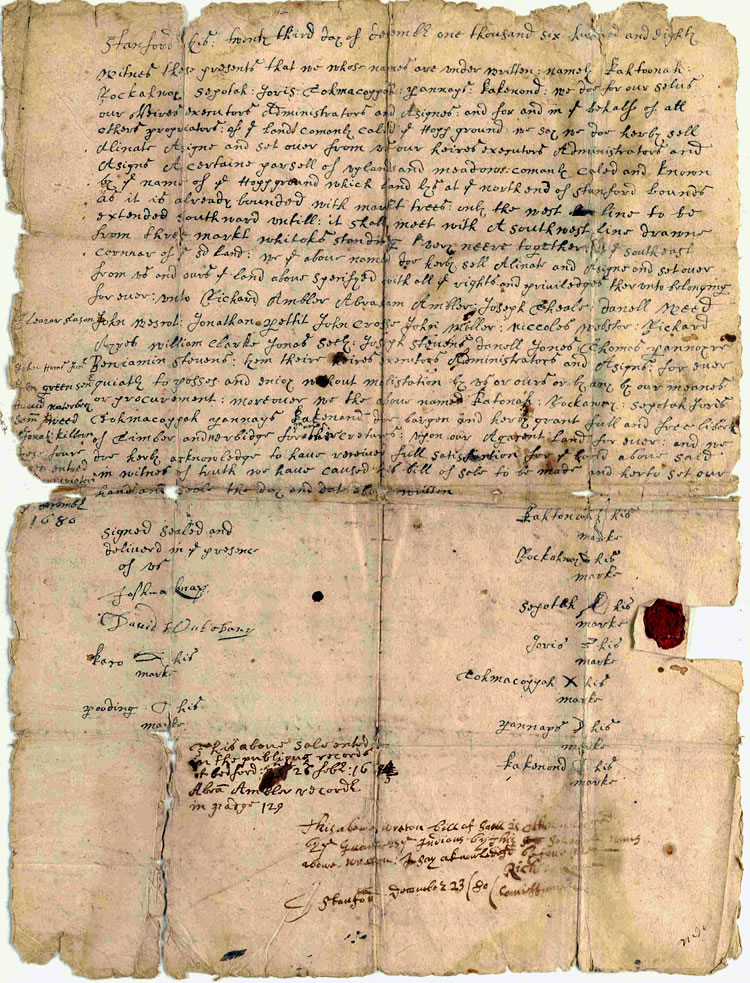 Stanford this: twenty third day of desembr one thousand six hundred and eighty
Witnes these presents that we whose names are under written: namely Kaktoonah:
Rockahway Sepotah: Joris: Tohmacoppah: Pannaps: Kakenond: we doe for our selus
our Heires executors Administrators and Asignes: and for and in ye behalf of all
others propriators: of ye Lands comonly caled ye Hopp ground: we say we doe herby sell
Alinate Asigne and set over from us our heires executors Administrators and
Asigns A certaine parsell of upland and meadows comonly caled and known
by ye name of ye Hopp ground which land lys at ye north end of Stanford bounds
as it is already bounded with markt trees: only the west line to be
extended southward untill: it shall meet with A southwest line drawne
from three markt whitoks standing very neere together: at ye southeast
cornar of ye sd land: we ye above named doe herby sell Alinate and Asigne and set over
from us and ours ye land above spesifyed with all ye rights and priviledges ther unto belonging
for ever: unto Richard Ambler Abraham Ambler: Joseph Theale: danell Weed
Eleazar slason John Wescot: Jonathan Pettit John Crosse John Miller: Niccoles Webster: Richard
Ayres William Clarke Jonas Seely: Joseph Stevens danell Jones Thomas pannoyre
John Homs Jur Benjamin Stevens: them theire heires exentors Administrators and Asigns: for ever
John green sen quiatly to posses and enioy without molistation by us or ours or by any by our meanes
david waterbery or procurement: moreover we the above named Katonah: Rockaway Sepotah Joris
Sam weed Tohmacoppah pannaps Kakenond doe bargen and herby grant full and free liberty
Jonat: killbor of timber and herbidge for othir creturs: upon our Ajacent Land for ever: and we
these foure doe herby acknowledg to have receiued full satisfaction for ye land above said
entred in witnes of truth we have caused this bill of sele to be made and herto set our
hand and seale the day and date above written
1680
Signed Sealed and
deliverd in ye presenc
of us
Joshua knap
David Waterbary
Karo his
marke
pooding his
marke
Kaktonah his
marke
Rockahway his
marke
Sepotah his
marke
Joris his
marke
Tohmacoppah X his
marke
pannaps his
marke
Kakenond his
marke
This above sale entred
in the publique records
at bedford: 25 febr: 16
Abra Ambler recordr
in padge 129
This above wreton bill of Sale is
by ye Indians
above wreton: I say aknowledgd before
Rich
Stanford December 23 (80 Comissionr